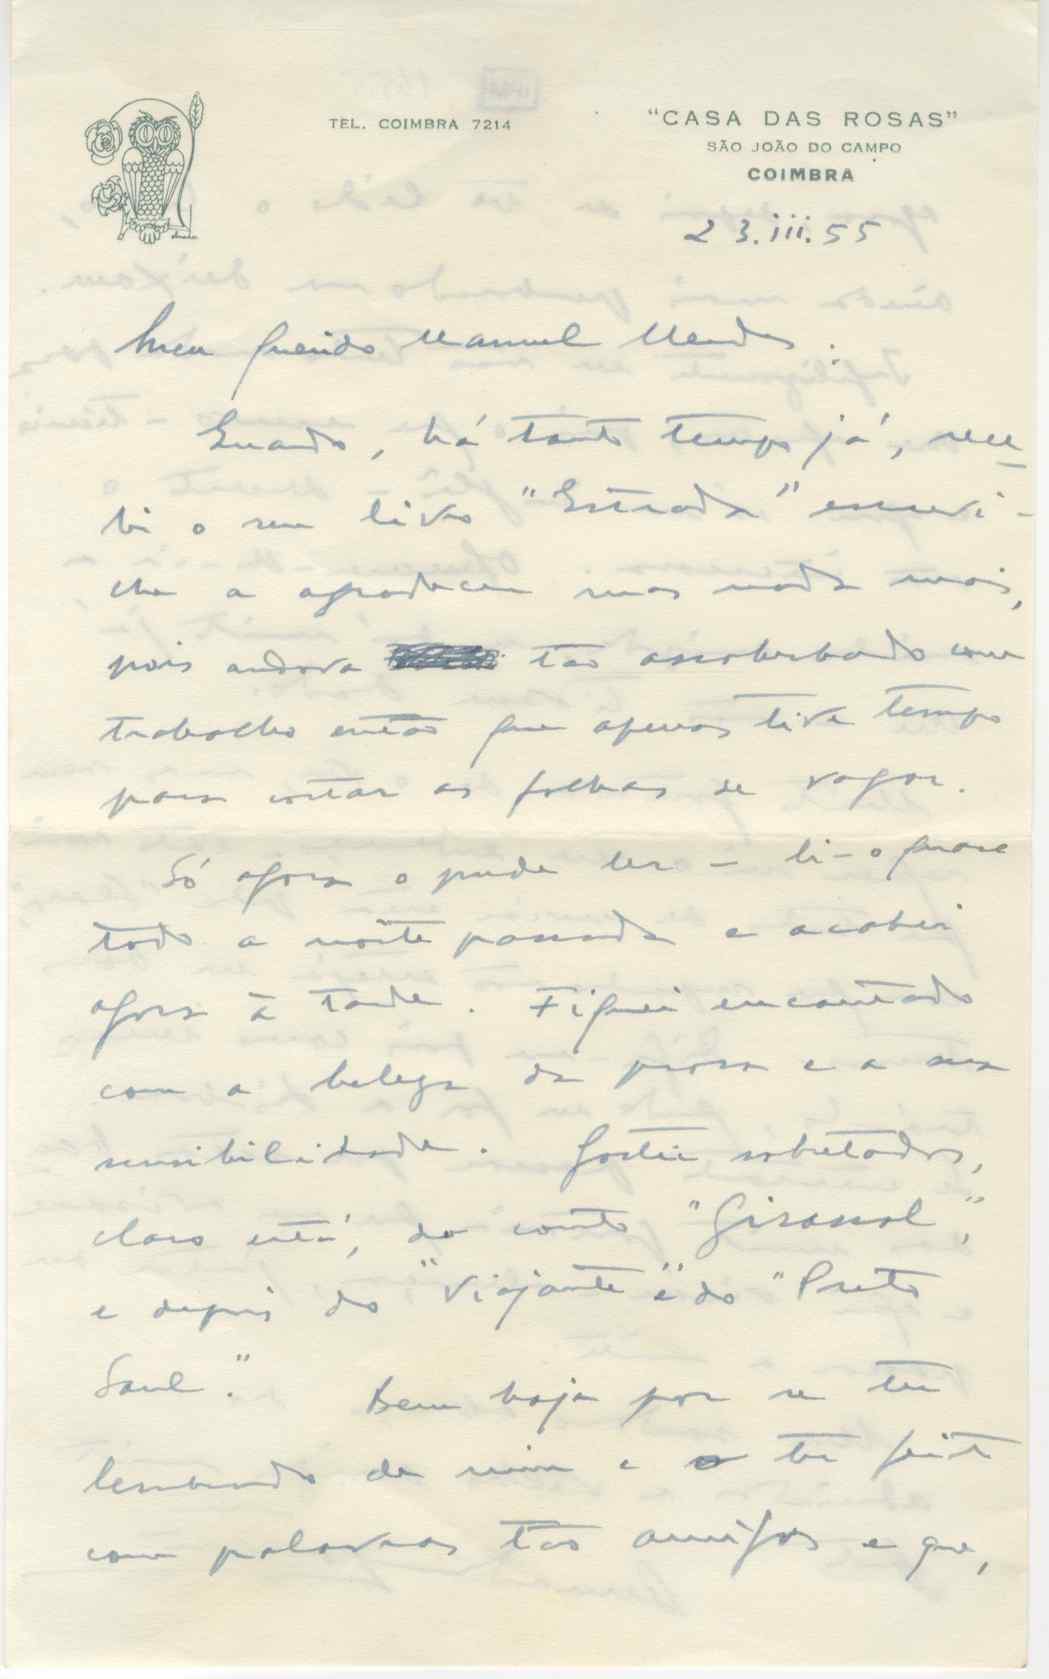 TEL. COIMBRA 7214
"CASA DAS ROSAS"
SÃO JOÃO DO CAMPO
COIMBRA
23.iii.55
Meu querido Manuel Mendes.
Quando, há tanto tempo já, rece-
bi o seu livro "Estrada" escrevi-
lhe a agradecer mas nada mais,
pois andava tão assoberbado com
trabalho então que apenas tive tempo
para cortar as folhas de vagar.
Só agora o pude ler - li-o quase
todo a noite passada e acabei
agora à tarde. Fiquei encantado
com a beleza da prosa e a sua
sensibilidade. Gostei sobretudo,
claro está, do conto "Girassol",
e depois do "Viajante" e do "Preto
Saul". Bem haja por se ter
lembrado de mim e o ter feito
com palavras tão amigas e que,